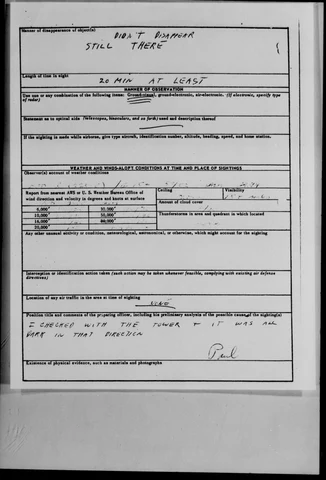 Manner of disappearance of object(s)
DIDN'T DISAPPEAR
STILL THERE
Length of time in sight
20 MIN AT LEAST
MANNER OF OBSERVATION
Use one or any combination of the following items: Ground-visual, ground-electronic, air-electronic. (If electronic, specify type of radar)
Statement as to optical aids (Telescopes, binoculars, and so forth) used and description thereof
If the sighting is made while airborne, give type aircraft, identification number, altitude, heading, speed, and home station.
WEATHER AND WINDS-ALOFT CONDITIONS AT TIME AND PLACE OF SIGHTINGS
Observer(s) account of weather conditions
Report from nearest AWS or U. S. Weather Bureau Office of wind direction and velocity in degrees and knots at surface
Ceiling
Visibility
Amount of cloud cover
6,000'
10,000'
16,000'
20,000'
30,000'
50,000'
80,000'
Thunderstorms in area and quadrant in which located
Any other unusual activity or condition, meteorological, astronomical, or otherwise, which might account for the sighting
Interception or identification action taken (such action may be taken whenever feasible, complying with existing air defense directives)
Location of any air traffic in the area at time of sighting
NONE
Position title and comments of the preparing officer, including his preliminary analysis of the possible cause of the sighting(s)
I CHECKED WITH THE TOWER + IT WAS ALL
DARK IN THAT DIRECTION
Paul
Existence of physical evidence, such as materials and photographs